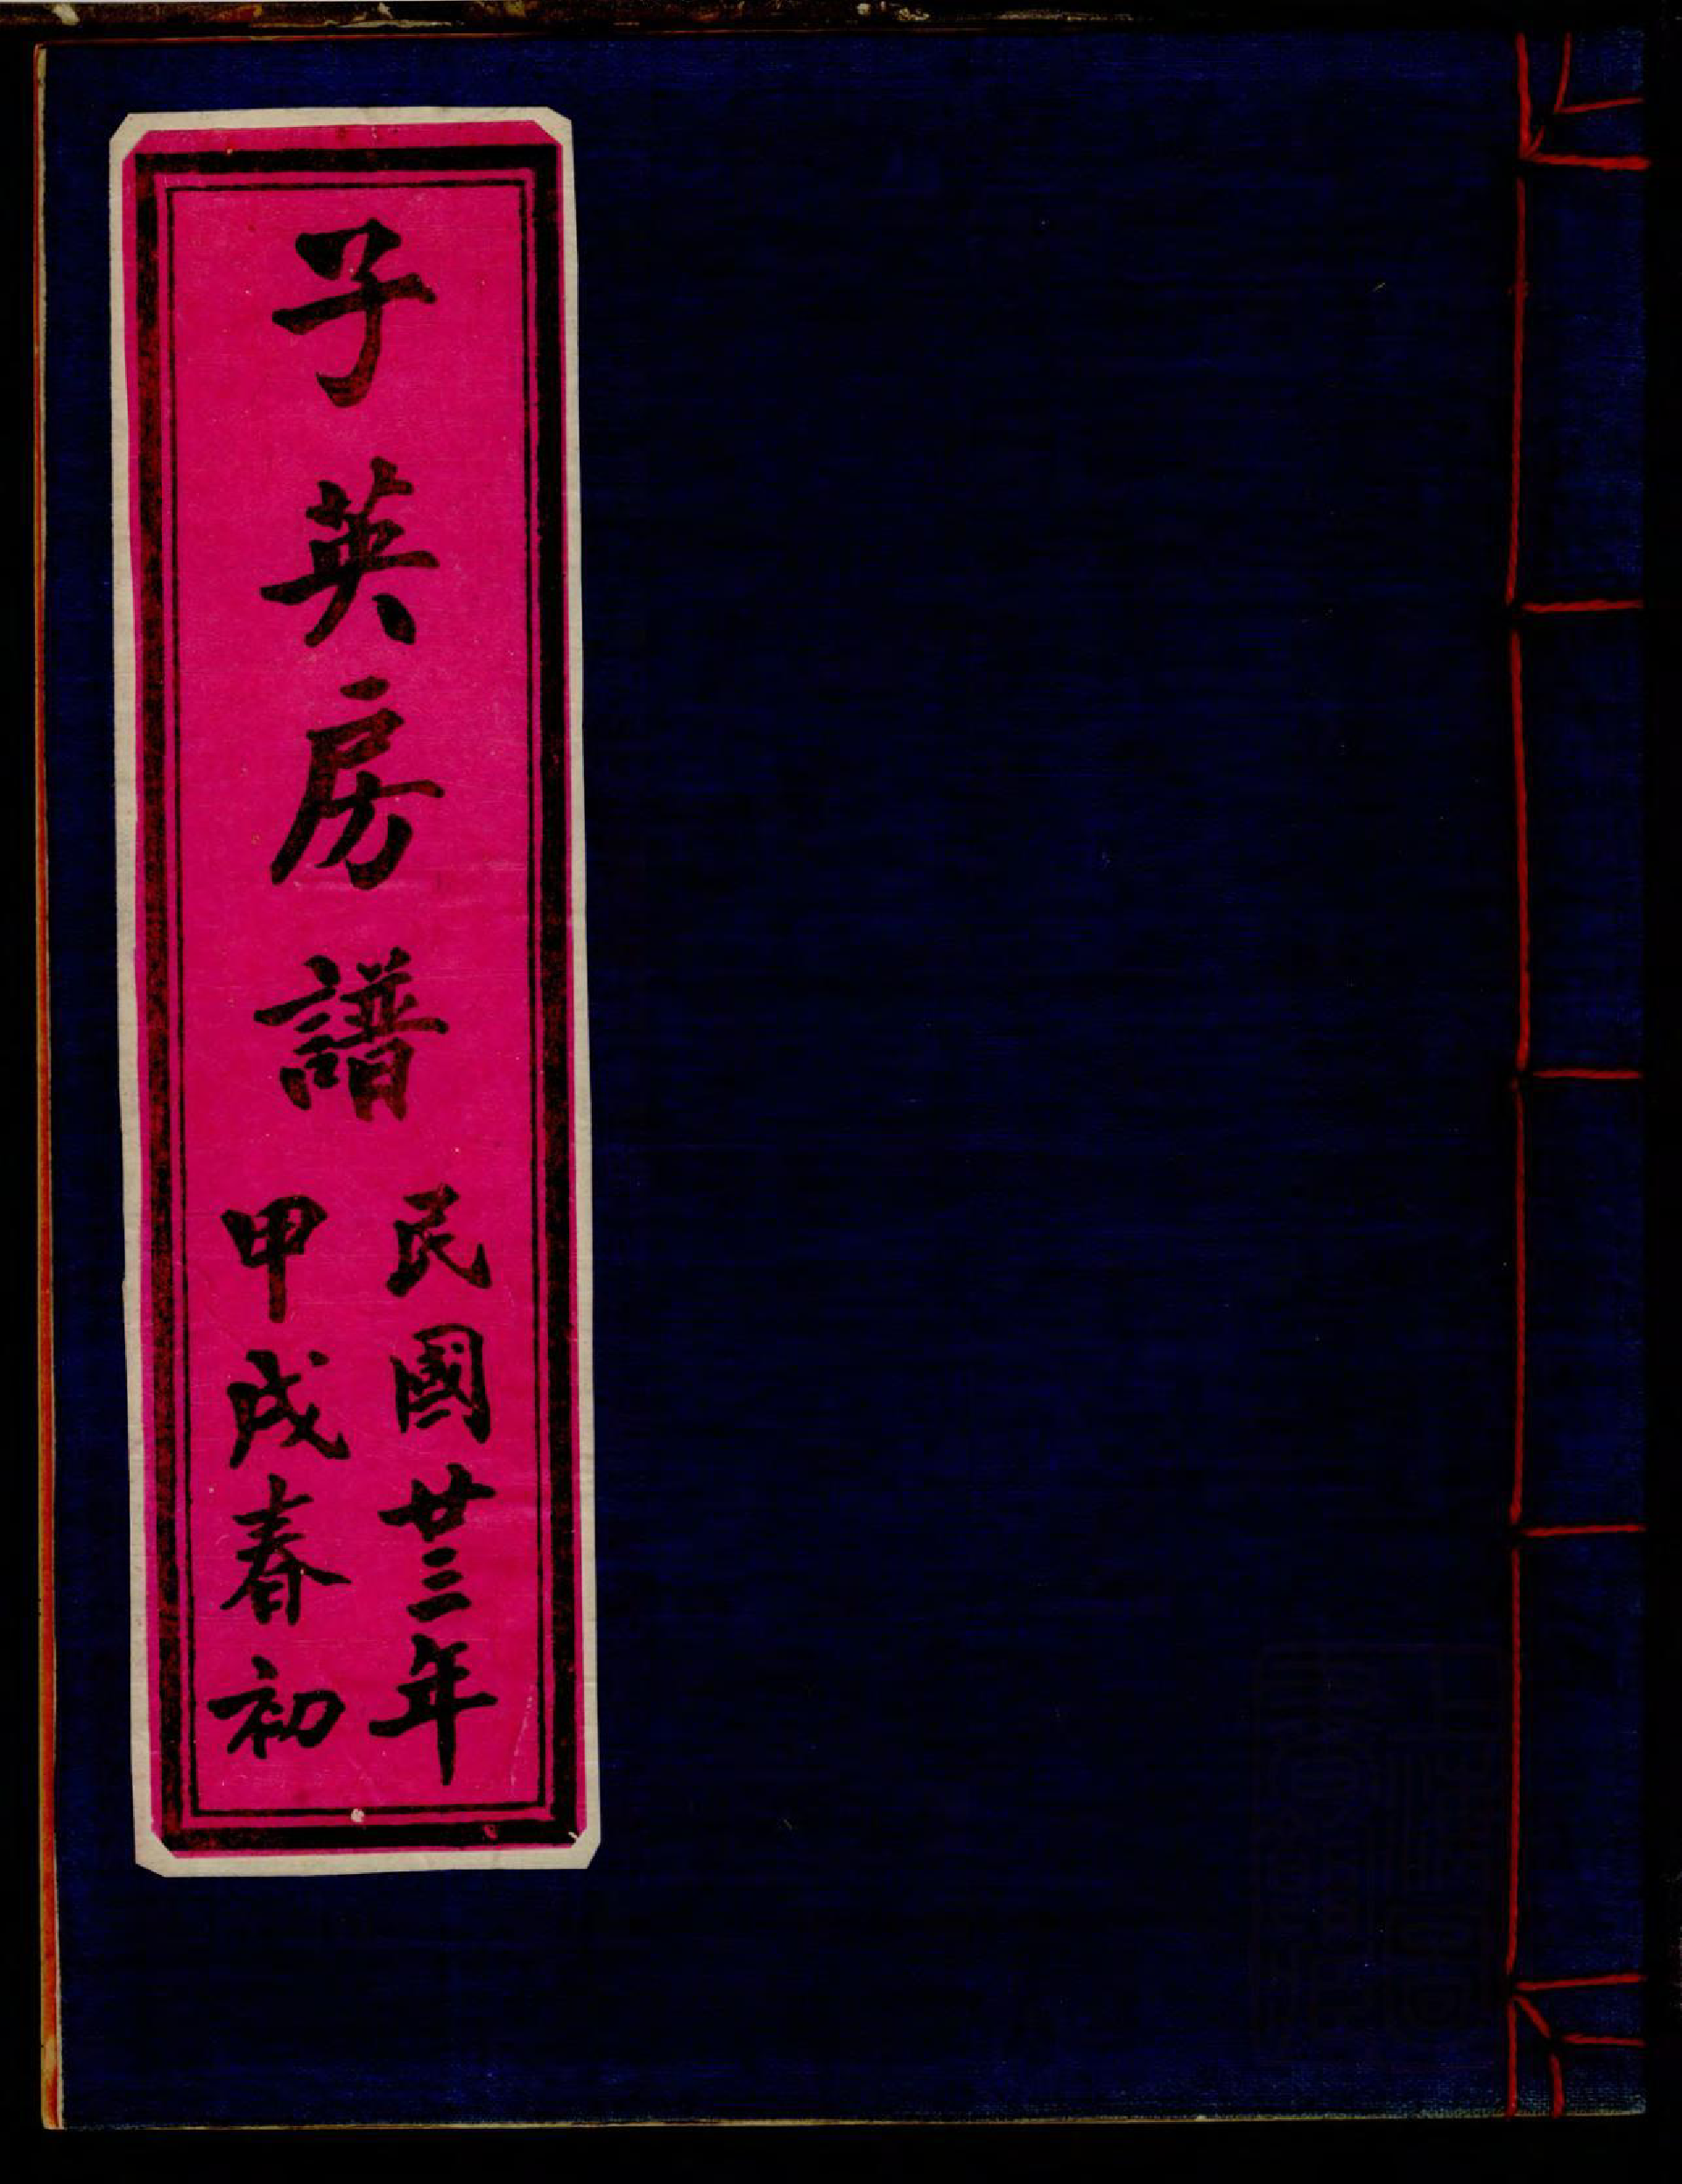 子英房譜
民國廿三年
甲戌春初